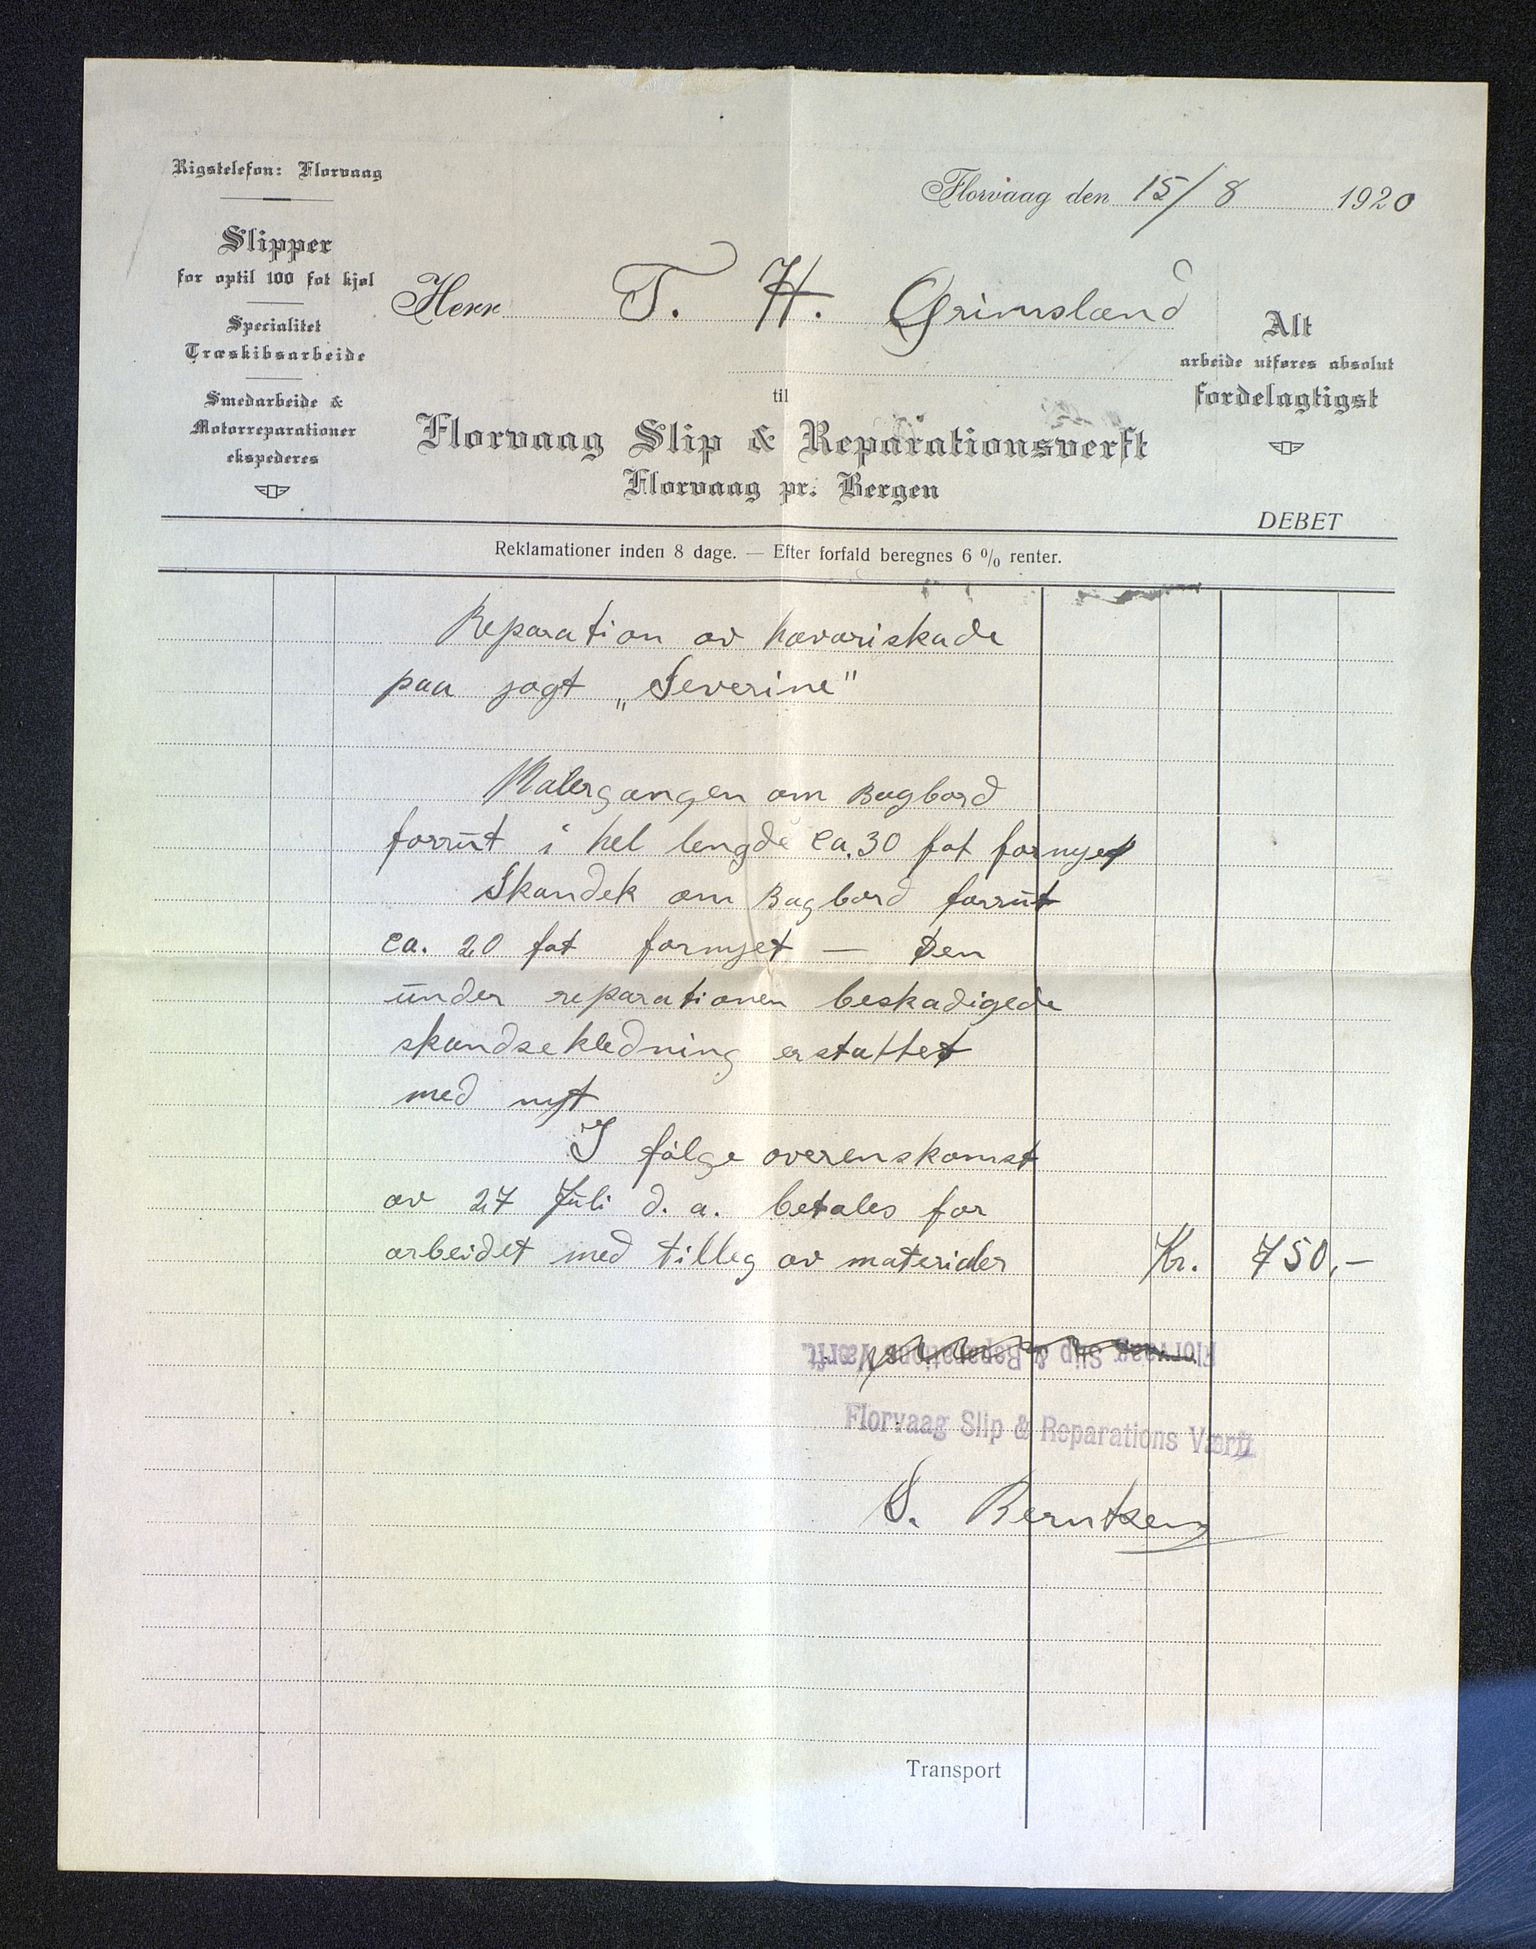 Rigstelefon: Florvaag
Slipper
for optil 100 fot kjøl
Specialitet
Træskibsarbeide
Smedarbeide &
Motorreparationer
ekspederes
Florvaag den 15/8 1920
Herr T. H. Grimsland
Alt
arbeide utføres absolut
fordelagtigst
til
Florvaag Slip & Reparationsverft
Florvaag pr. Bergen
DEBET
Reklamationer inden 8 dage. — Efter forfald beregnes 6 % renter.
Reparation av havariskade
paa jagt „Severine"
Malergangen om Bagbord
forrut i hel lengde ca. 30 fot fornyet
Skandek om Bagbord forrut
ca. 20 fot fornyet — Den
under reparationen beskadigede
skandsekledning erstattet
med nyt
I følge overenskomst
av 27 Juli d. a. betales for
arbeidet med tilleg av materialer Kr. 750,—
Florvaag Slip & Reparations Værft.
Florvaag Slip & Reparations Værft
S. Berntsen
Transport